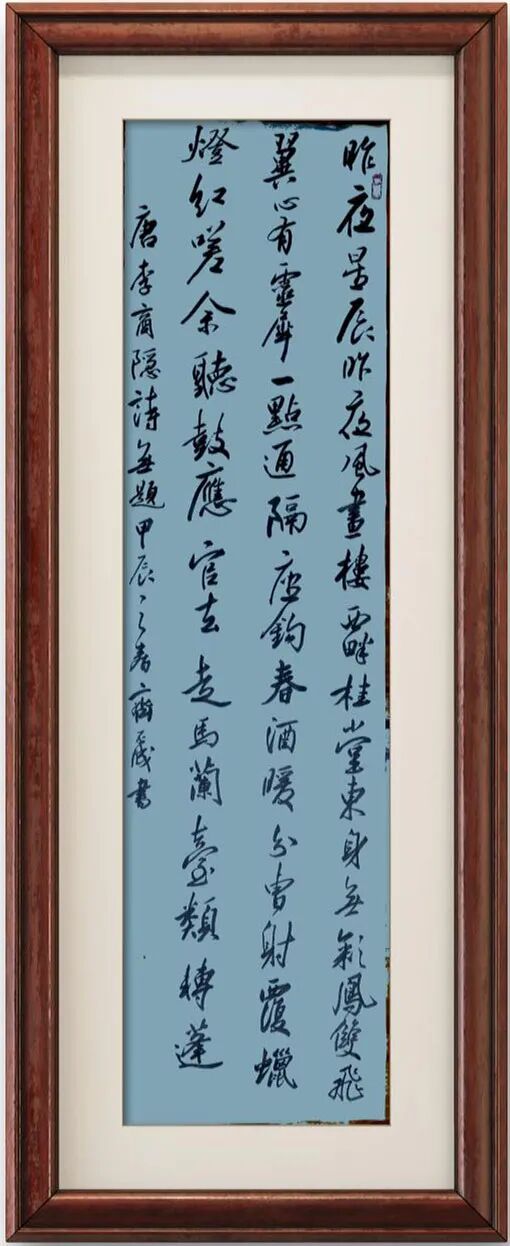 昨夜星辰昨夜風畫樓西畔桂堂東身無彩鳳雙飛
翼心有靈犀一點通隔座鈎春酒暖分曹射覆蠟
燈紅嗟余聽鼓應官去走馬蘭臺類轉蓬
唐李商隱詩無題甲辰之春
書